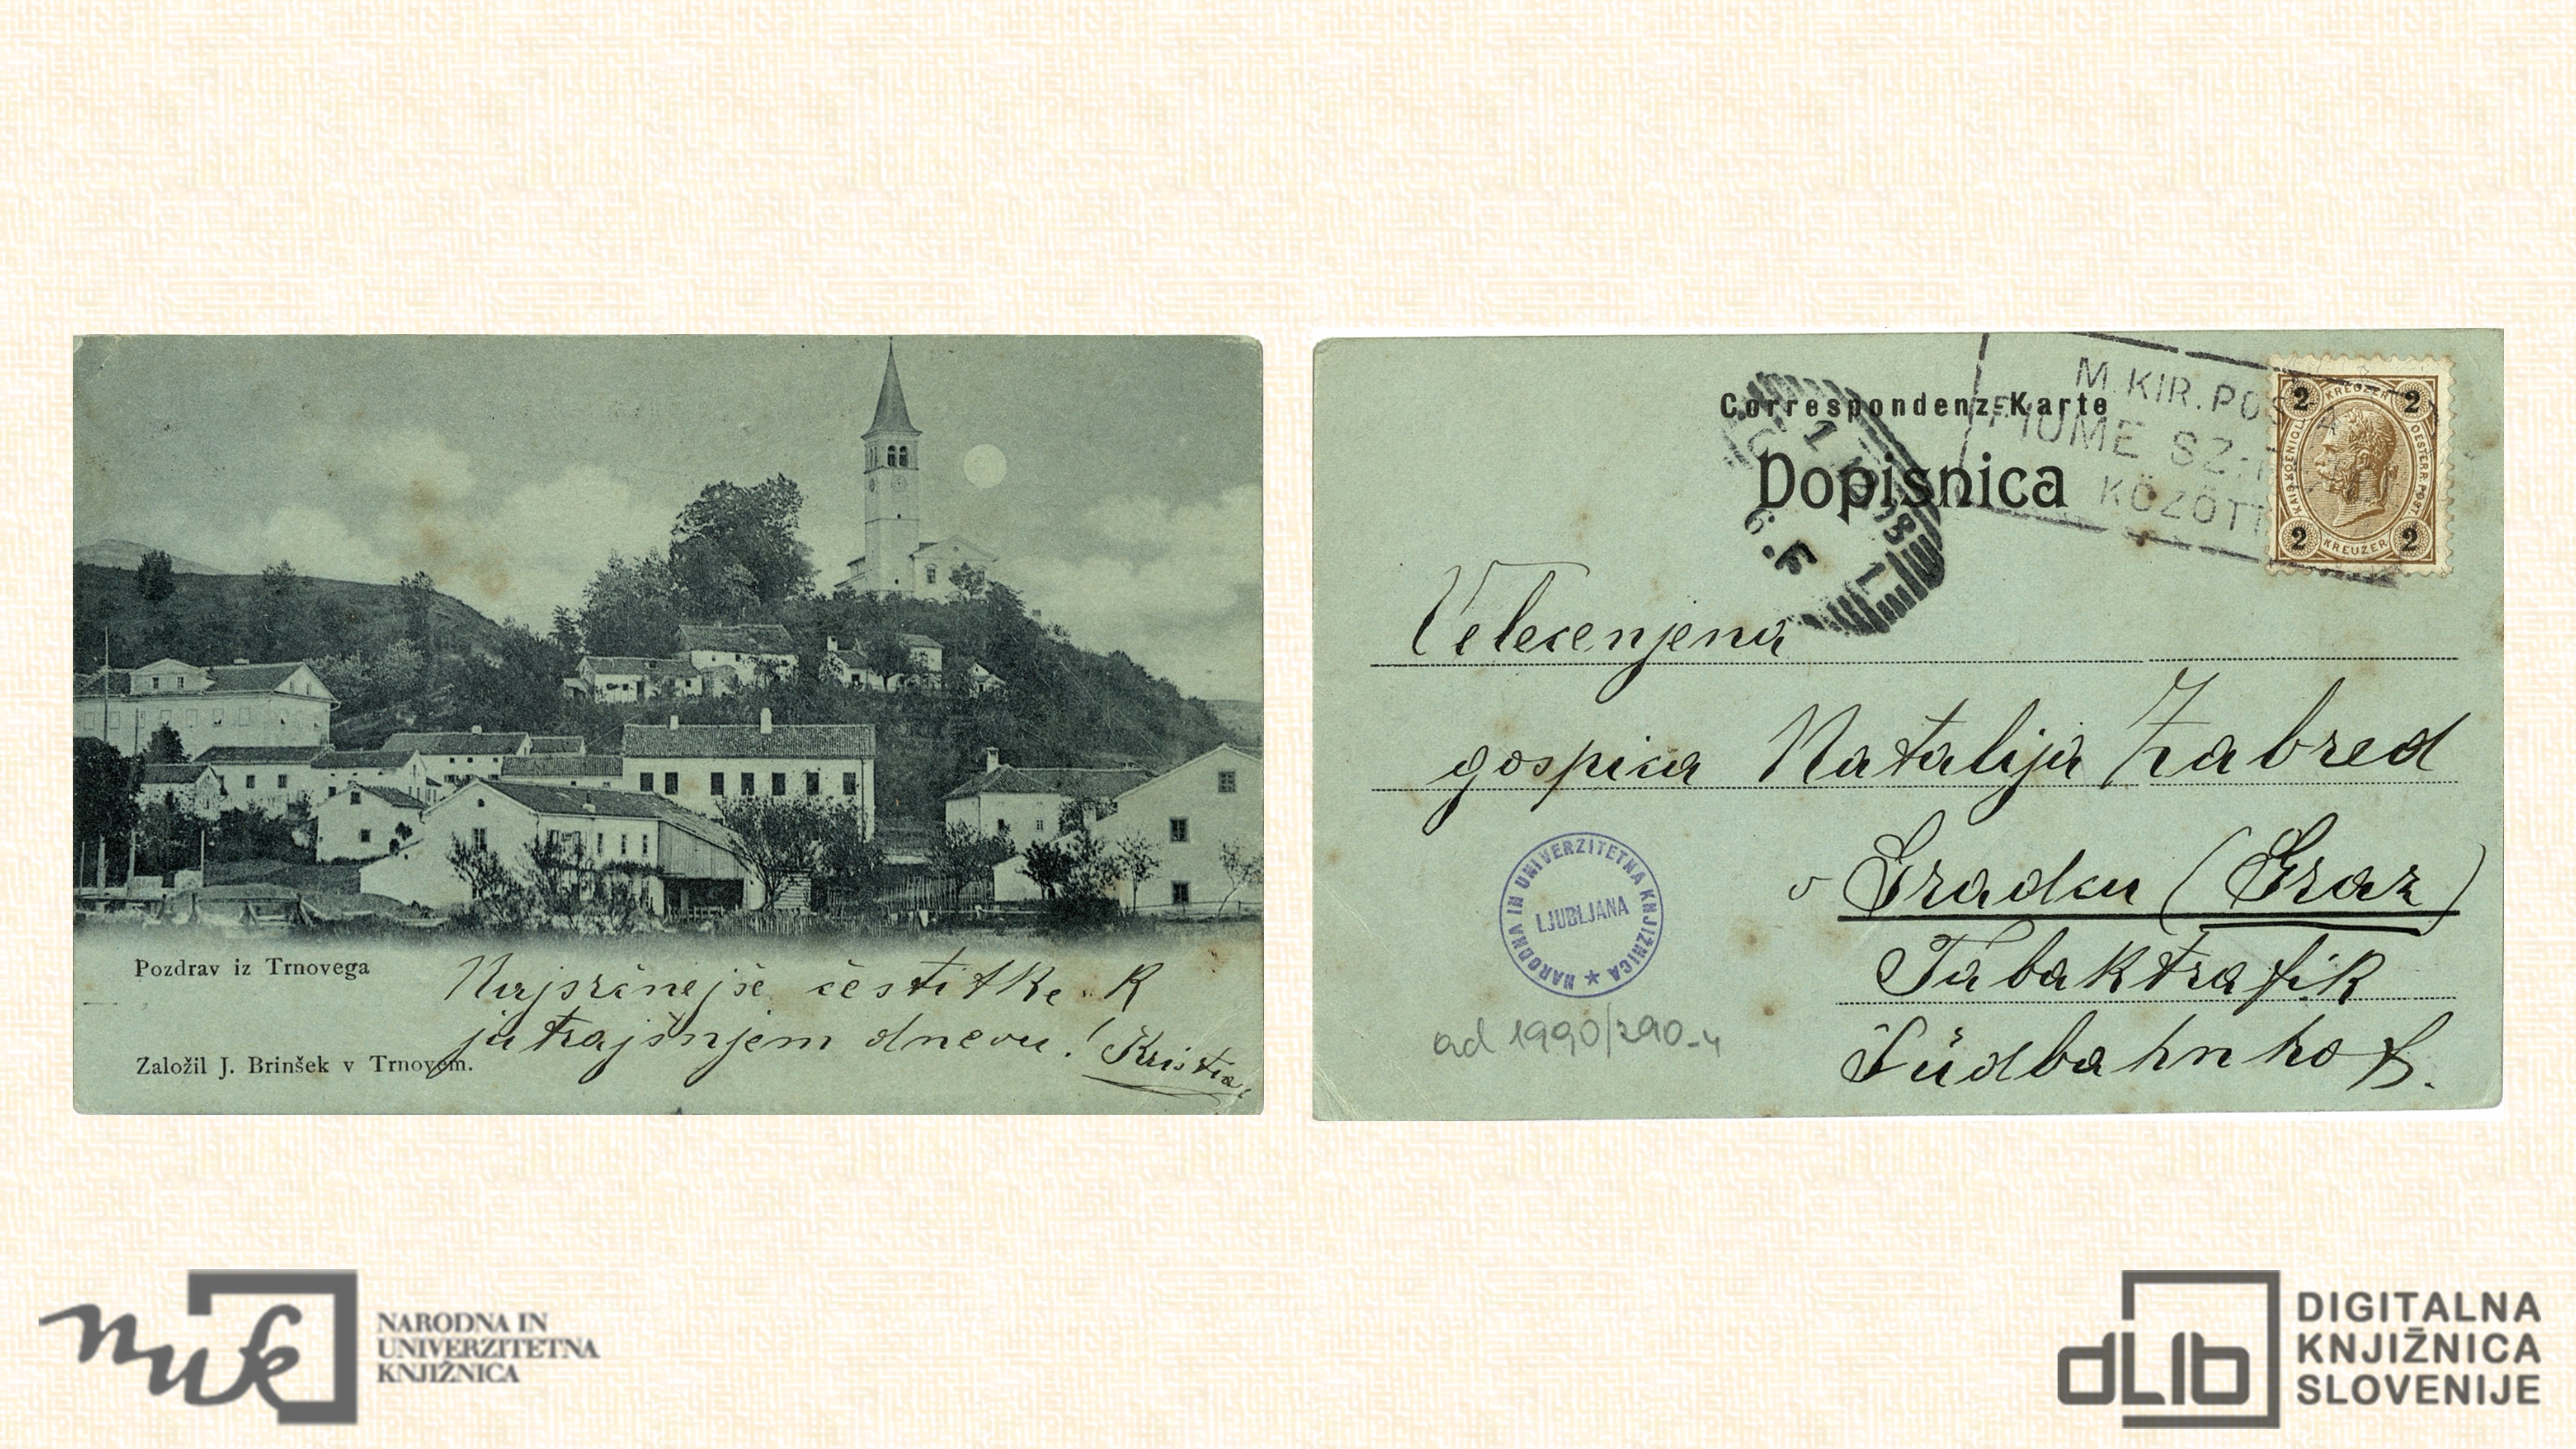 Pozdrav iz Trnovega
Najsrčnejše čestitke k
jutrajšnjem dnevu!
Založil J. Brinšek v Trnovem.
Correspondenz-Karte
Dopisnica
M. KIR. POSTA
FIUME SZ:
KÖZÖTT
6.E
KREUZER
KAIS. KOENIGL. OESTERR. POST.
2 2
2 2
KREUZER
Velecenjena
gospica Natalija Žabred
v Gradcu (Graz)
Tabaktrafik
Südbahnhof.
NARODNA IN UNIVERZITETNA KNJIŽNICA
LJUBLJANA
ad 1990/290-4
nuk
NARODNA IN
UNIVERZITETNA
KNJIŽNICA
dLIb
DIGITALNA
KNJIŽNICA
SLOVENIJE